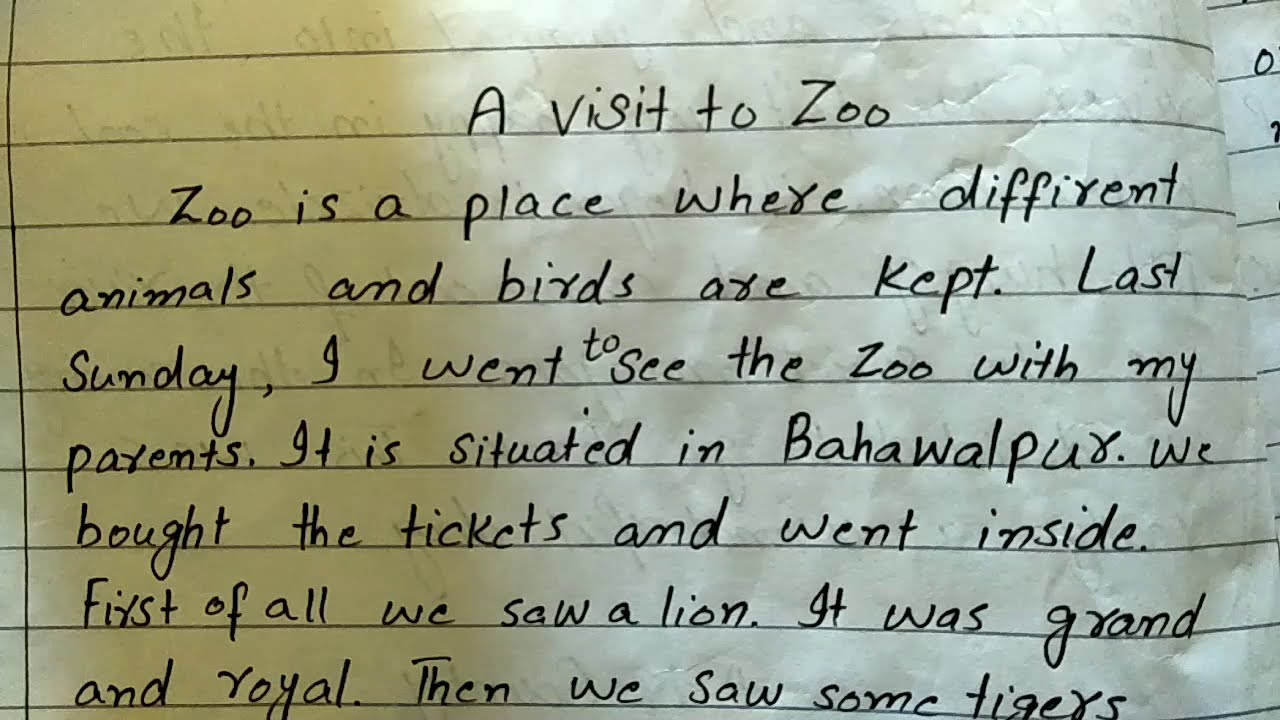 A visit to Zoo
Zoo is a place where diffirent
animals and birds are kept. Last
Sunday, I went to see the Zoo with my
parents. It is situated in Bahawalpur. We
bought the tickets and went inside.
First of all we saw a lion. It was grand
and royal. Then we saw some tigers